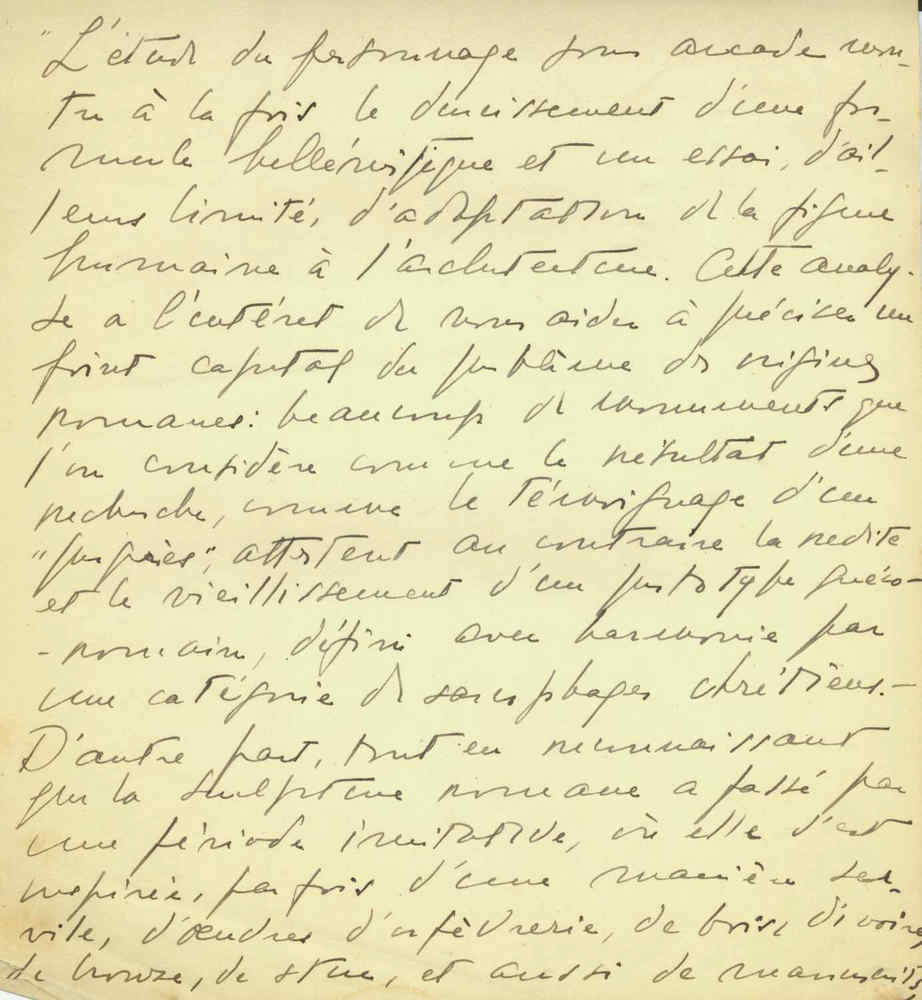 "L'étude du personnage sous arcade mon-
tre à la fois le durcissement d'une for-
mule hellénistique et un essai, d'ail-
leurs limité, d'adaptation de la figure
humaine à l'architecture. Cette analy-
se a l'intérêt de nous aider à préciser un
point capital du problème des origines
romanes: beaucoup de monuments que
l'on considère comme le résultat d'une
recherche, comme le témoignage d'un
"progrès", attestent au contraire la redite
et le vieillissement d'un prototype gréco-
-romain, défini avec harmonie par
une catégorie de sarcophages chrétiens.—
D'autre part, tout en reconnaissant
que la sculpture romane a passé par
une période imitative, où elle s'est
inspirée, parfois d'une manière ser-
vile, d'œuvres d'orfèvrerie, de bois, d'ivoire,
de bronze, de stuc, et aussi de manuscrits,